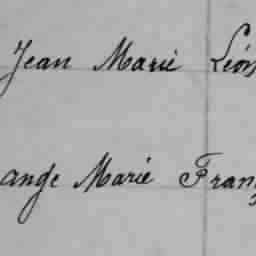 Jean Marie Léon
ange Marie Fran